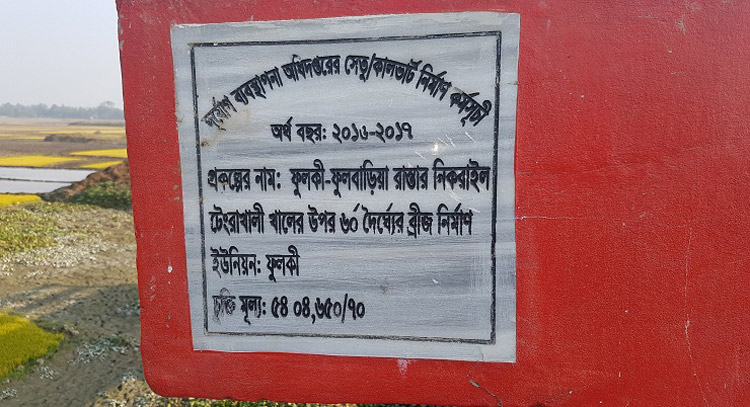 দুর্যোগ ব্যবস্থাপনা অধিদপ্তরের সেতু/কালভার্ট নির্মাণ কর্মসূচী
অর্থ বছর: ২০১৬-২০১৭
প্রকল্পের নাম: ফুলকী-ফুলবাড়িয়া রাস্তার নিকরাইল
টেংরাখালী খালের উপর ৬০́ দৈর্ঘ্যের ব্রীজ নির্মাণ
ইউনিয়ন: ফুলকী
চুক্তি মূল্য: ৫৪ ০৪,৬৫০/৭০